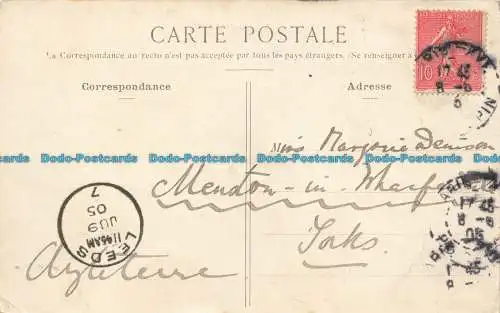 CARTE POSTALE
La Correspondance au recto n'est pas acceptée par tous les pays étrangers. (Se renseigner à
Correspondance
Adresse
10
17 45
8 - 6
Miss Marjorie Denison
Dodo-Postcards Dodo-Postcards Dodo-Postcards Dodo-Postcards
Menston-in-Wharfe
Yorks
Angleterre
LEEDS
11 45 AM
JU 9
05
7